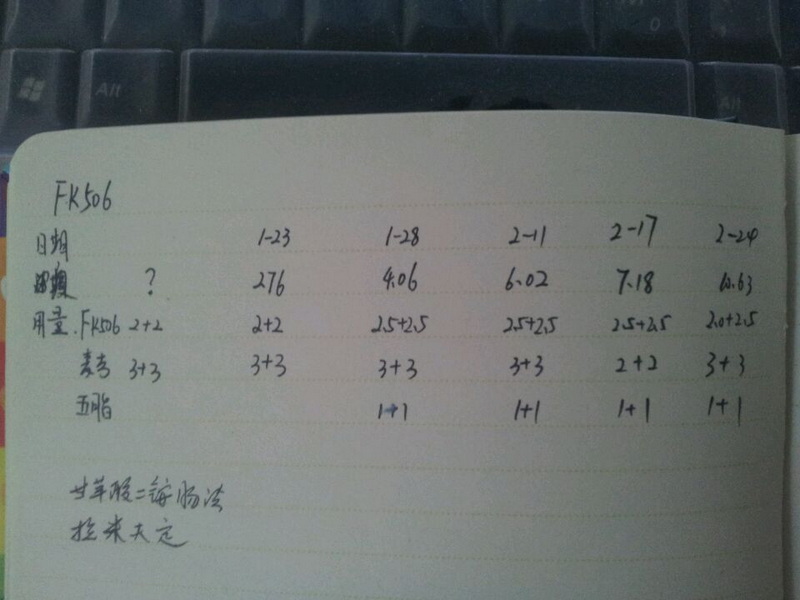 FK506
日期 1-23 1-28 2-11 2-17 2-24
? 276 4.06 6.02 7.18 10.63
用量.FK506 2+2 2+2 2.5+2.5 2.5+2.5 2.5+2.5 2.0+2.5
3+3 3+3 3+3 3+3 2+2 3+3
五脂 1+1 1+1 1+1 1+1
甘草酸二铵肠溶
拉米夫定
Alt
Alt